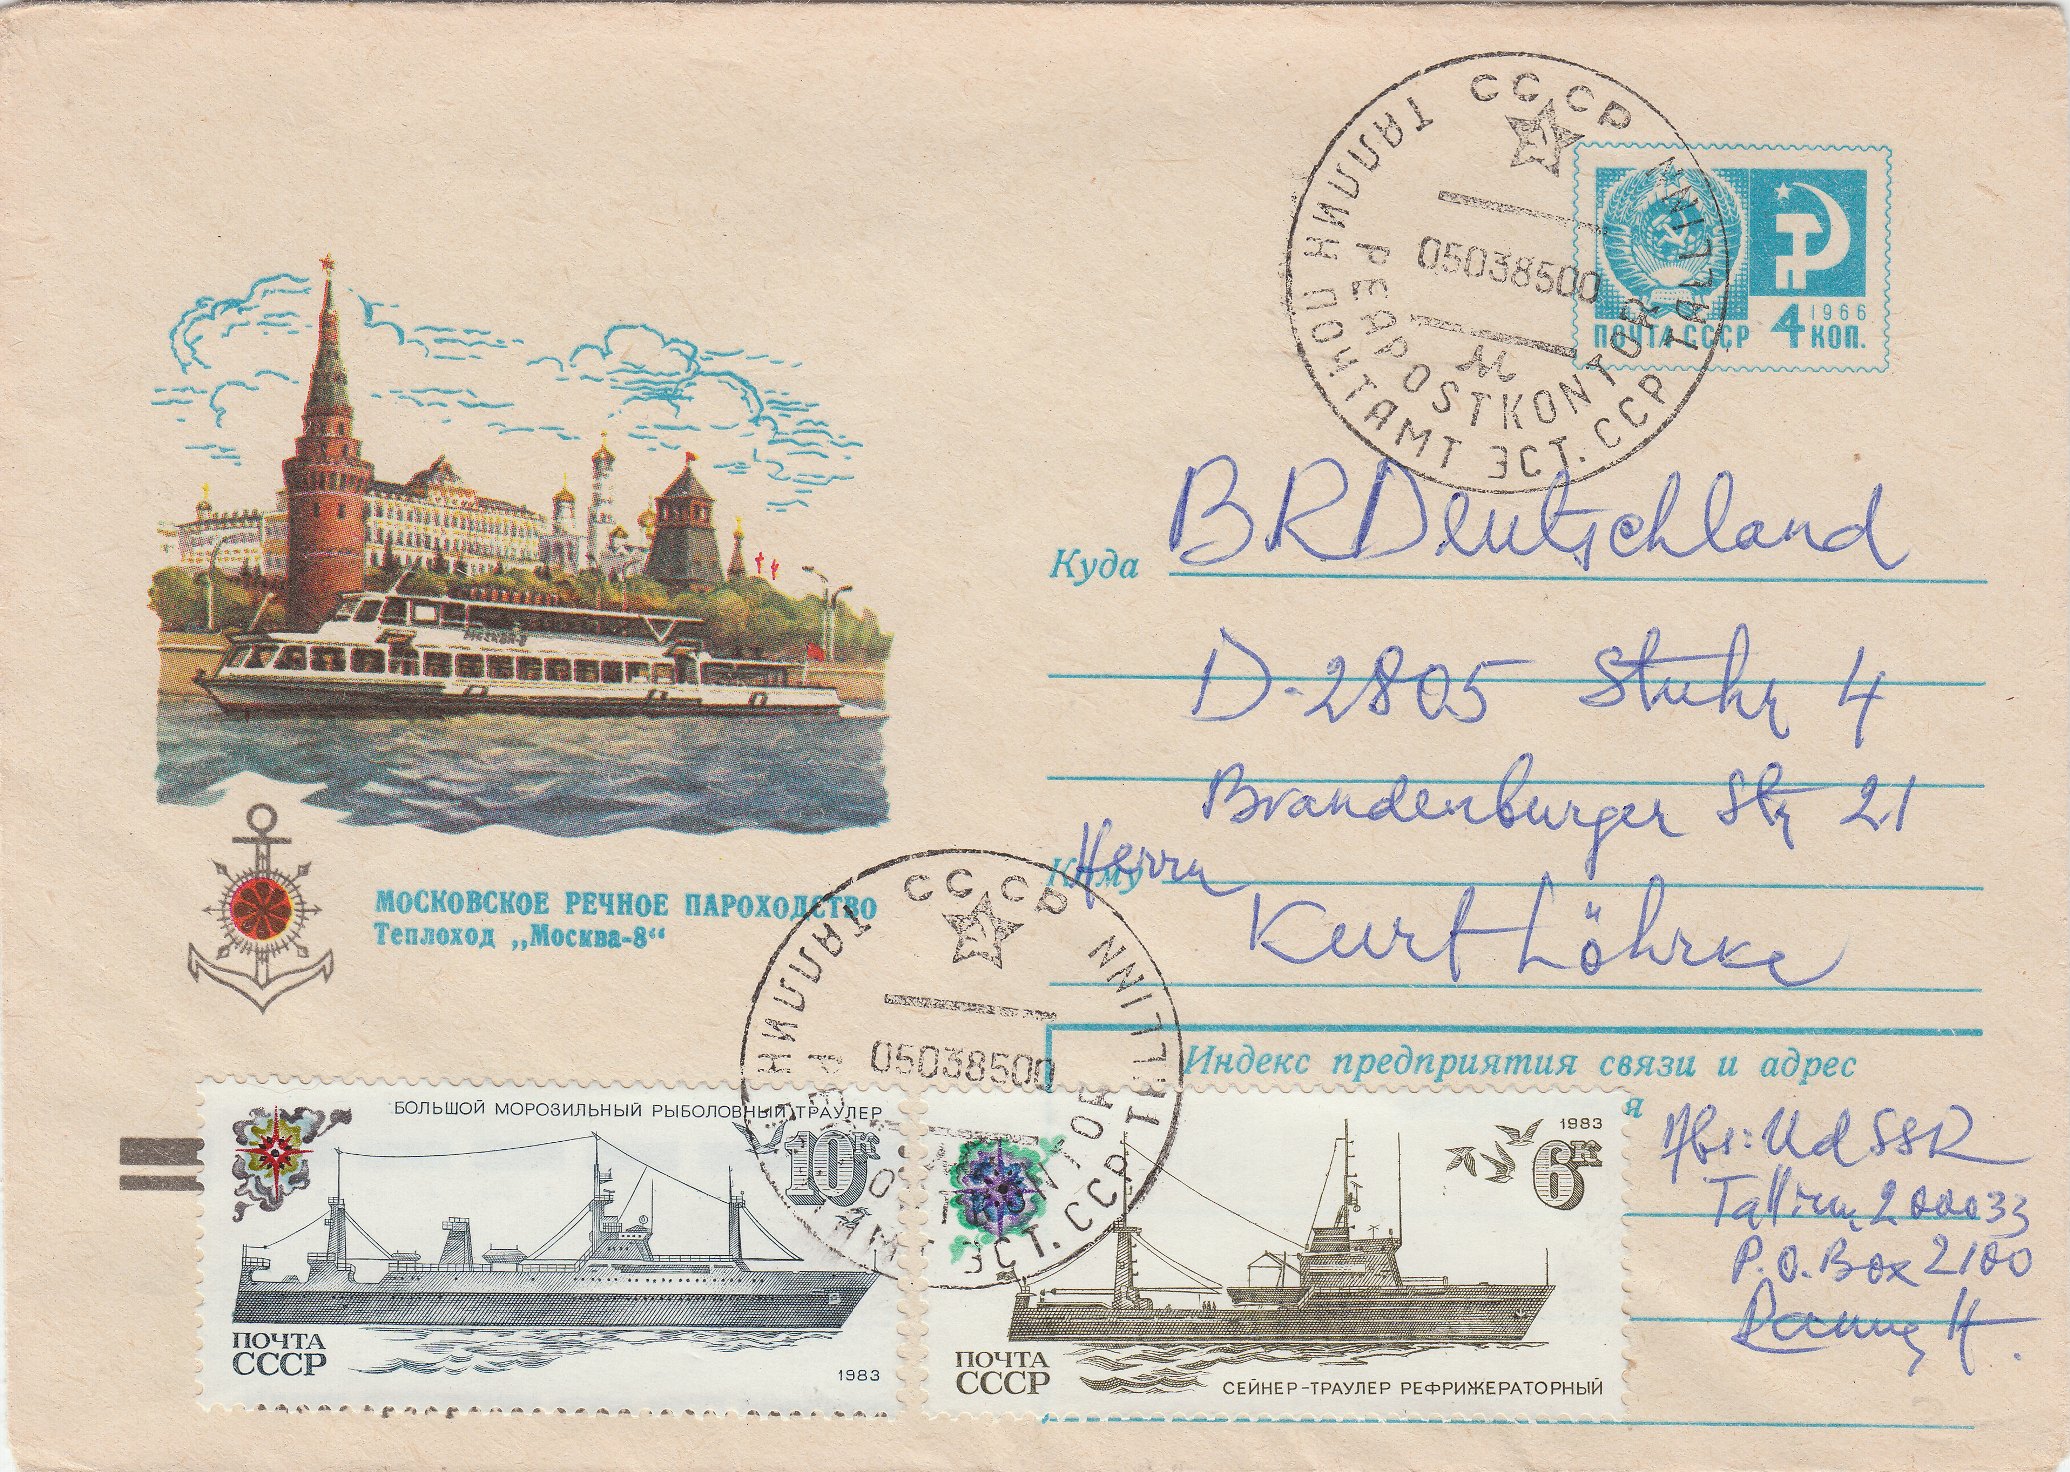 СССР
ТАЛЛИН ПОЧТАМТ ЭСТ.ССР
TALLINN PEAPOSTKONTOR
05038500
ПОЧТА СССР 4 КОП.
1966
Куда BRDeutschland
D-2805 Stuhr 4
Brandenburger Str 21
Кому Herrn
Kurt Löhrke
МОСКОВСКОЕ РЕЧНОЕ ПАРОХОДСТВО
Теплоход „Москва-8“
СССР
TALLINN
0503850
Индекс предприятия связи и адрес
Abs: UdSSR
Tallinn 200033
P.O.Box 2100
БОЛЬШОЙ МОРОЗИЛЬНЫЙ РЫБОЛОВНЫЙ ТРАУЛЕР
10к
ПОЧТА
СССР
1983
1983
6к
ПОЧТА
СССР
СЕЙНЕР-ТРАУЛЕР РЕФРИЖЕРАТОРНЫЙ